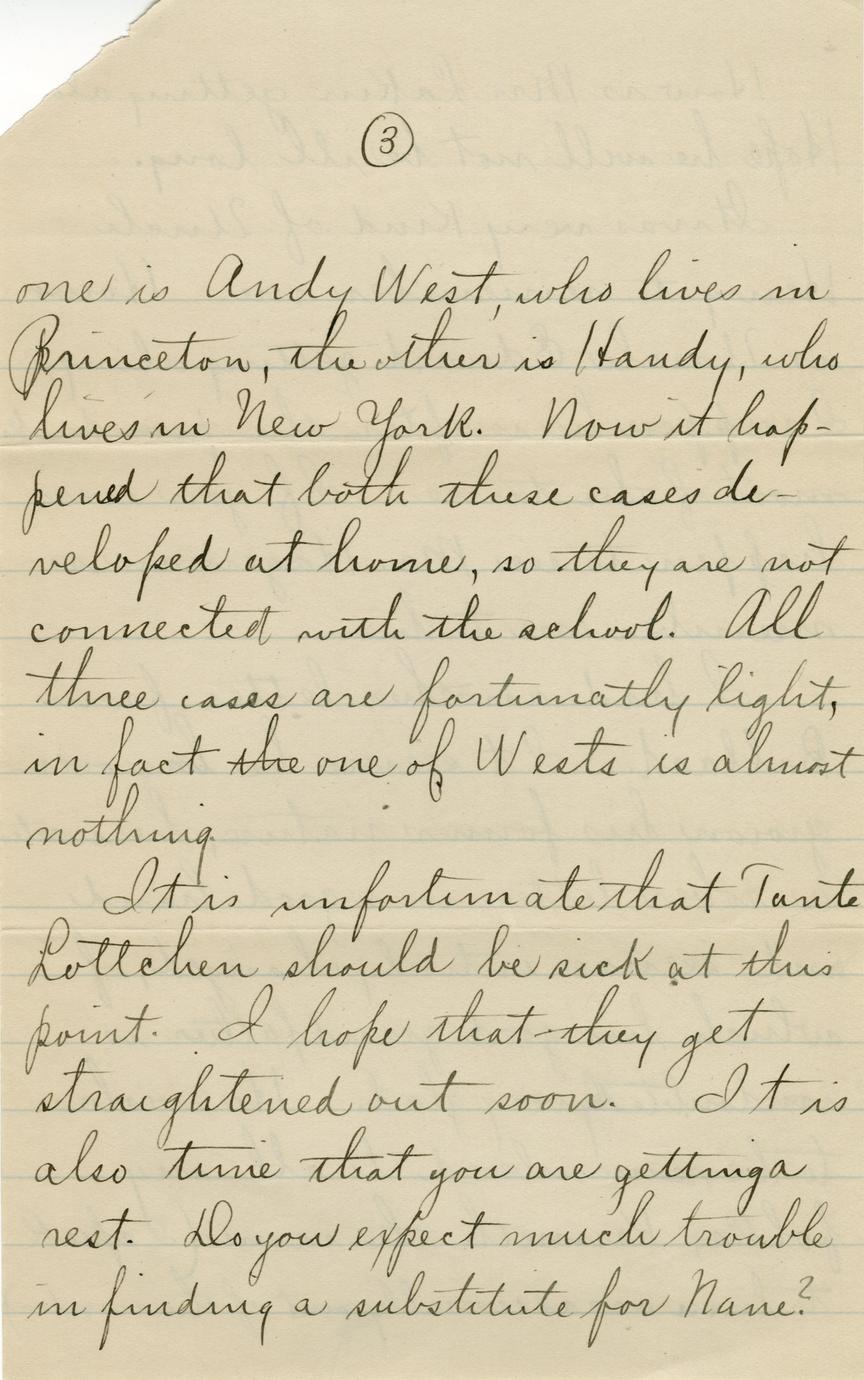 3
one is Andy West, who lives in
Princeton, the other is Handy, who
lives in New York. Now it hap-
pened that both these cases de-
veloped at home, so they are not
connected with the school. All
three cases are fortunatly light,
in fact the one of Wests is almost
nothing.
It is unfortunate that Tante
Lottchen should be sick at this
point. I hope that they get
straightened out soon. It is
also time that you are getting a
rest. Do you expect much trouble
in finding a substitute for Nane?